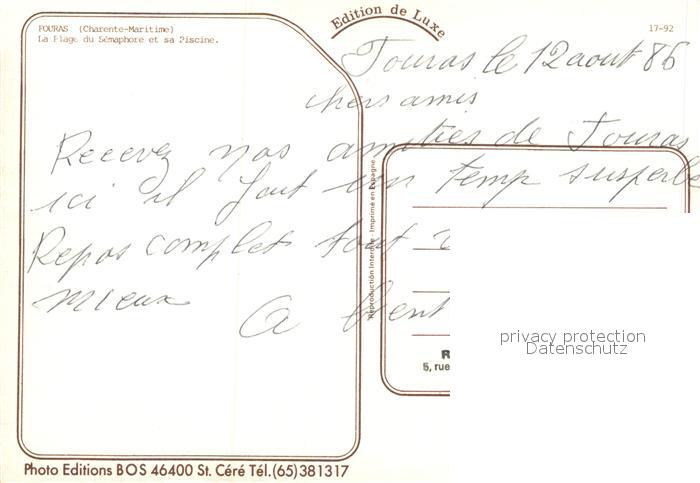 FOURAS (Charente-Maritime)
La Plage du Sémaphore et sa Piscine.
Edition de Luxe
17-92
Fouras le 12 aout 86
chers amis
Recevez nos amities de Fouras
ici il fait un temp susperbe
Repos complet tout
mieux
A bient
Reproduction Interdite - Imprimé en Espagne
R
5, rue
privacy protection
Datenschutz
Photo Editions BOS 46400 St. Céré Tél.(65)381317